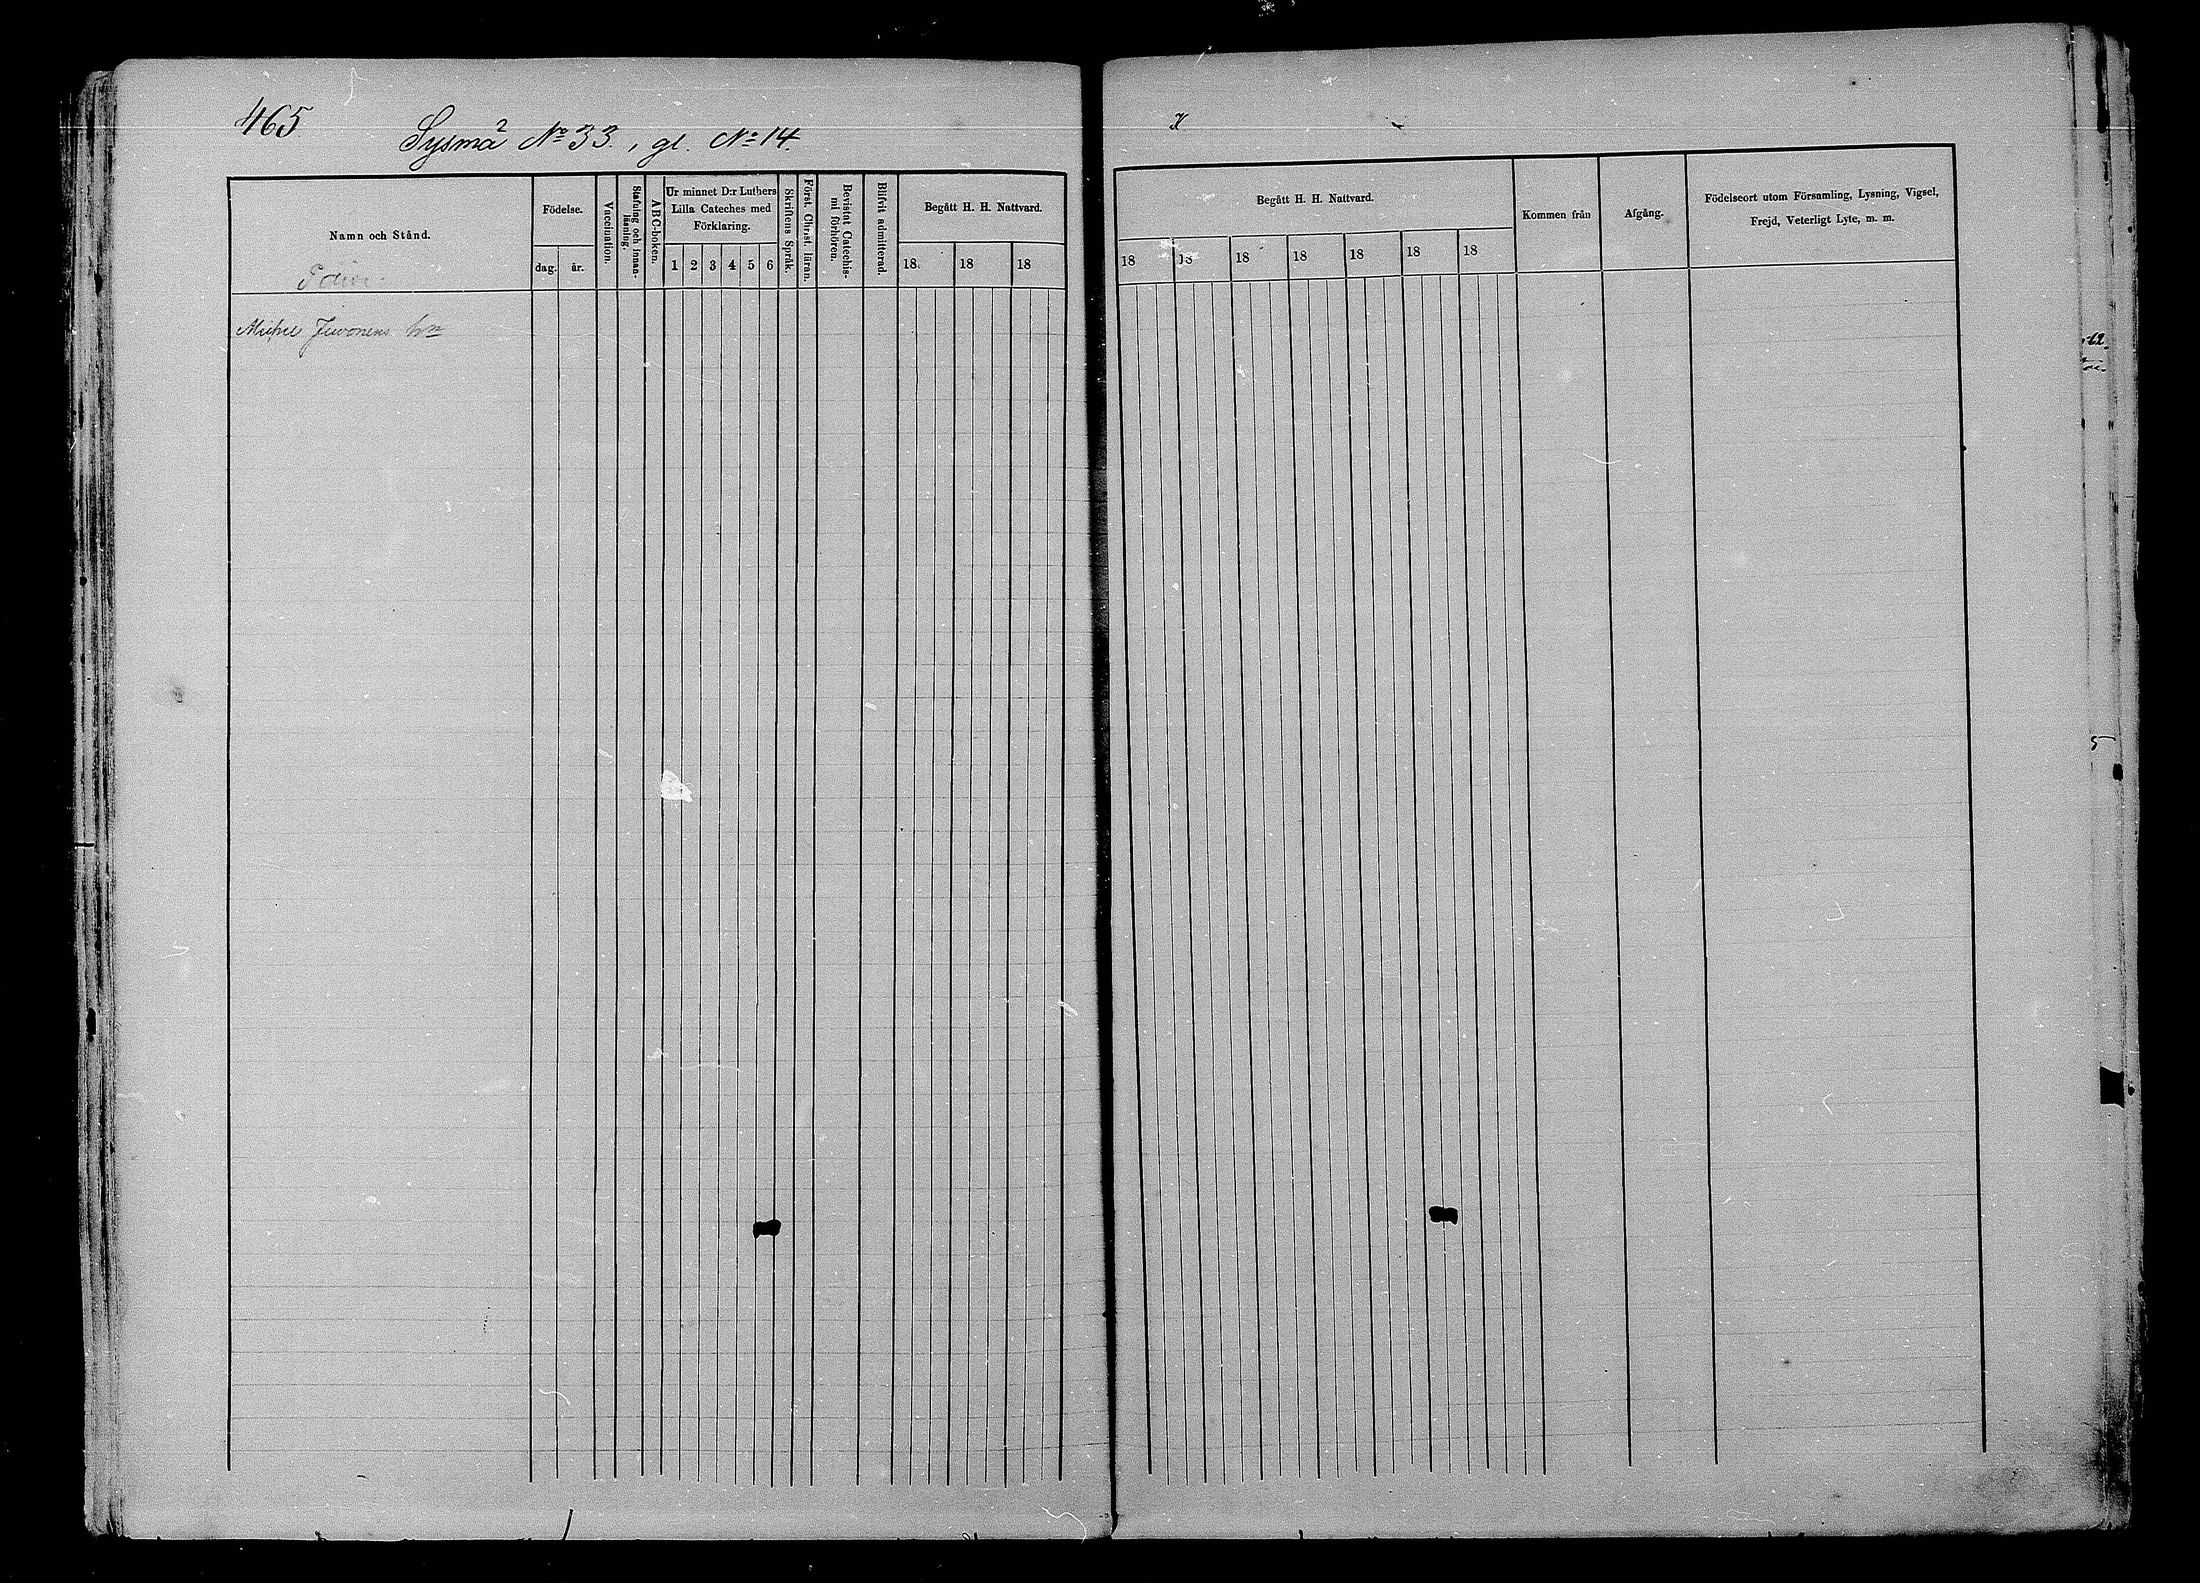 465
Sysmä 2 No 33., gl. No 14.
Namn och Stånd.
Födelse.
dag. år.
Vaccination.
Stafning och innan-
läsning.
ABC-boken.
Ur minnet D:r Luthers
Lilla Cateches med
Förklaring.
1 2 3 4 5 6
Skriftens Språk.
Först. Christ. läran.
Bevistat Catechis-
mi förhören.
Blifvit admitterad.
Begått H. H. Nattvard.
18 18 18
Michel Juvonens
Begått H. H. Nattvard.
18 18 18 18 18 18 18
Kommen från
Afgång.
Födelseort utom Församling, Lysning, Vigsel,
Frejd, Veterligt Lyte, m. m.